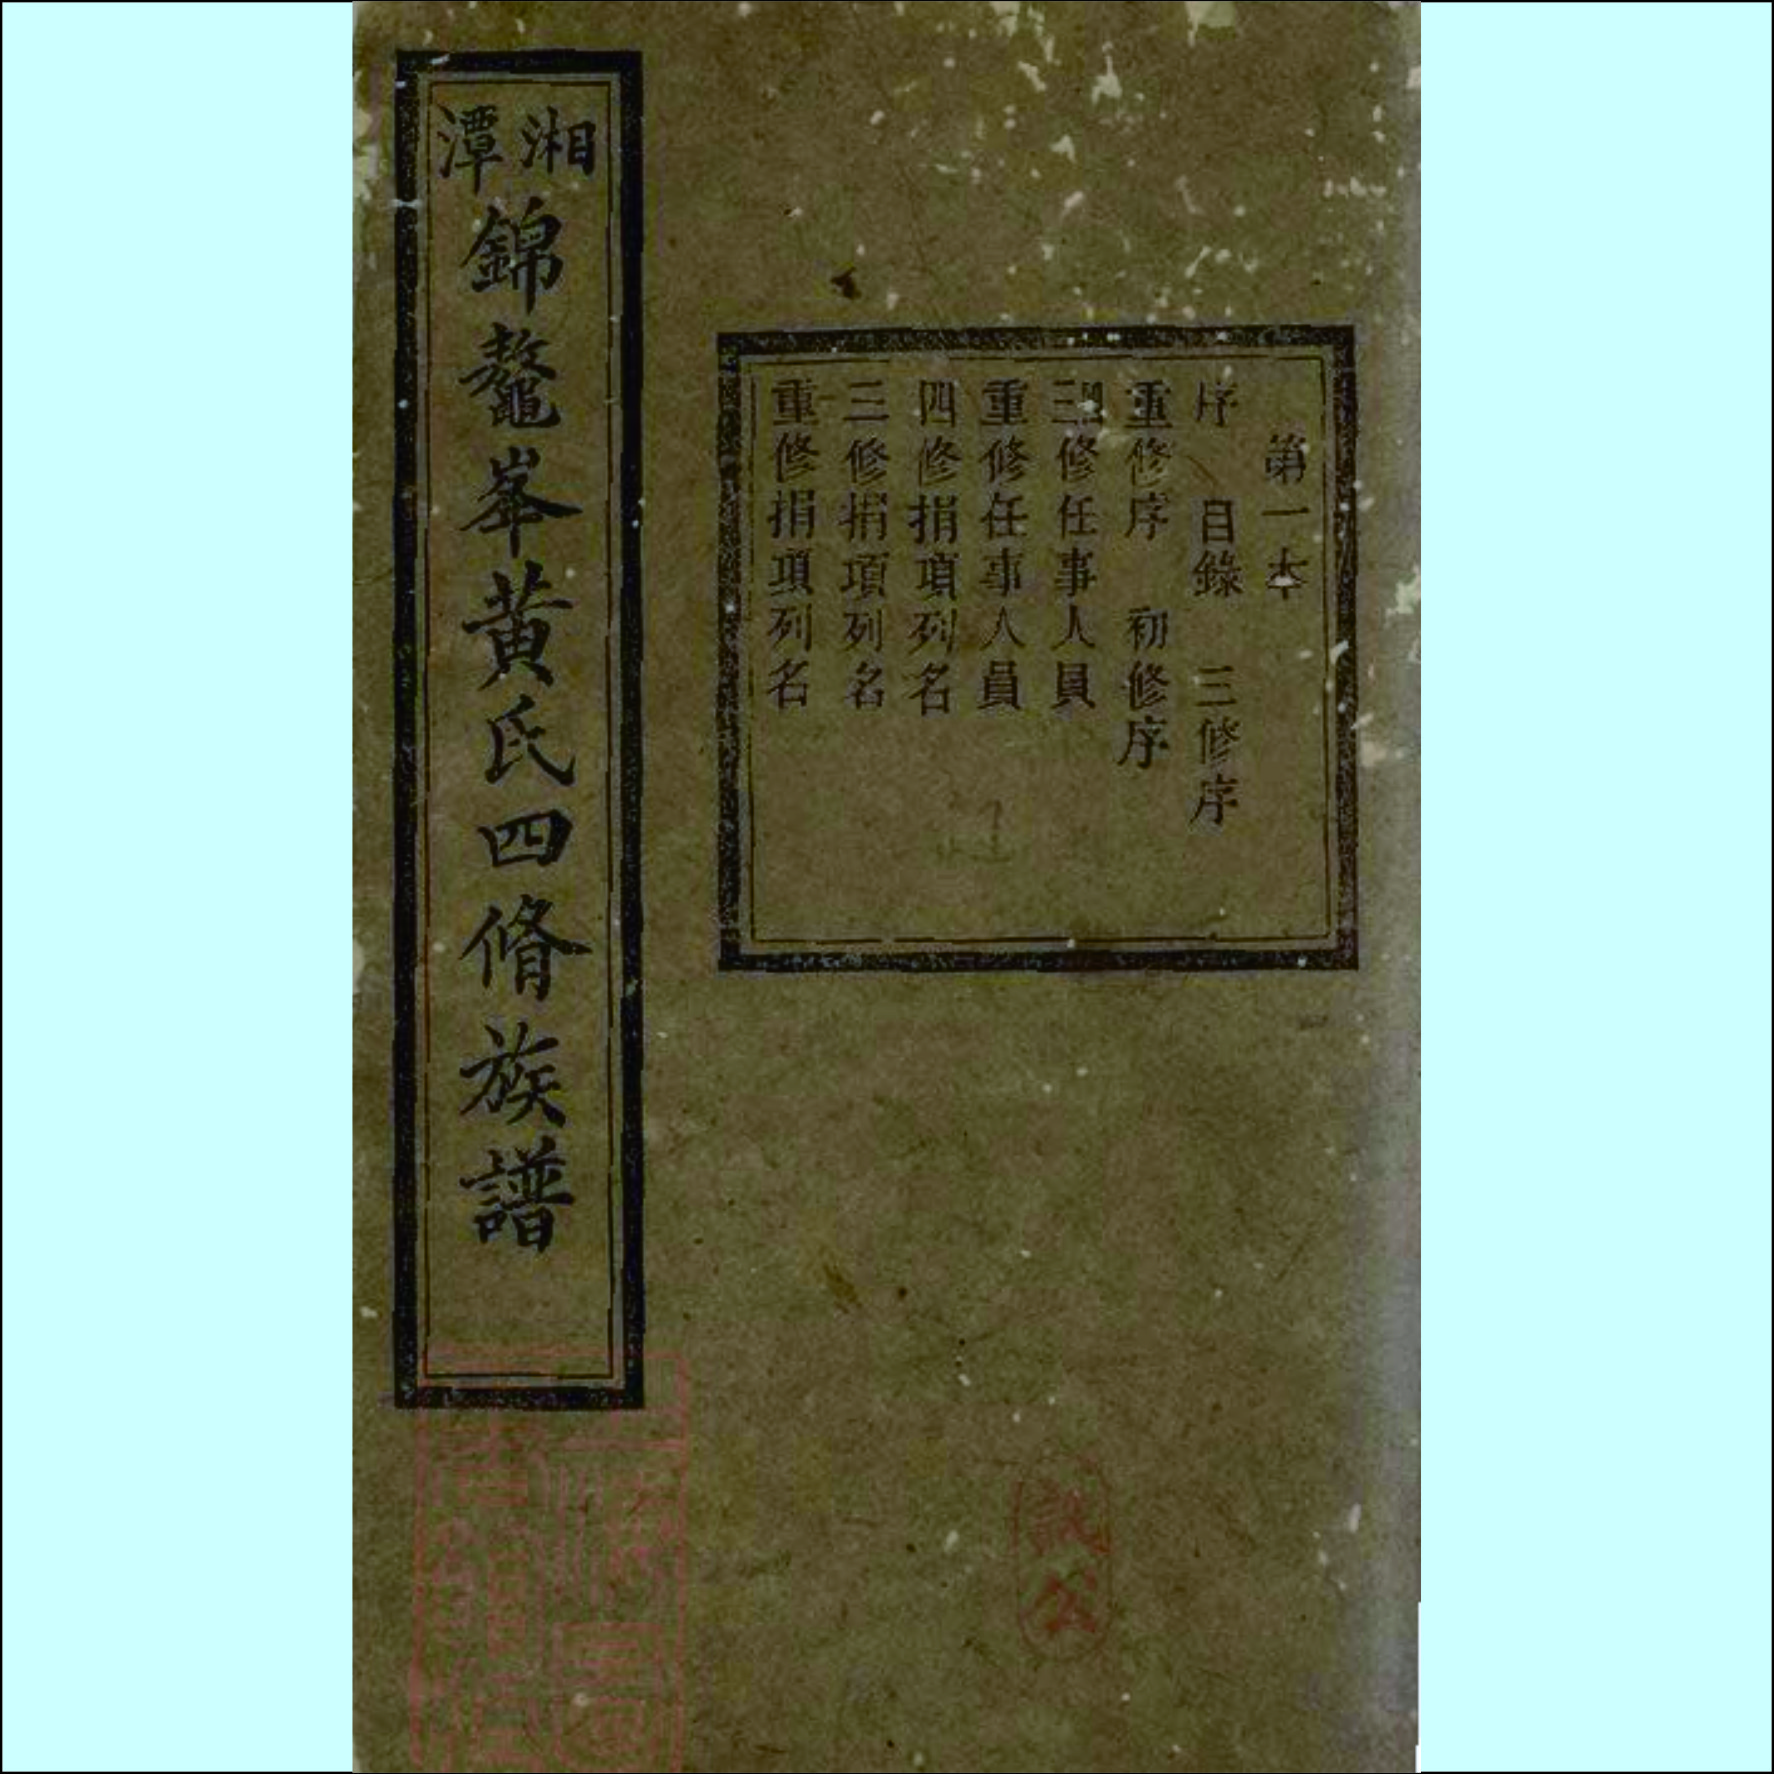 湘潭
錦鰲峯黃氏四脩族譜
第一本
序 目錄 三修序
重修序 初修序
三四修任事人員
重修任事人員
四修捐項列名
三修捐項列名
重修捐項列名
公